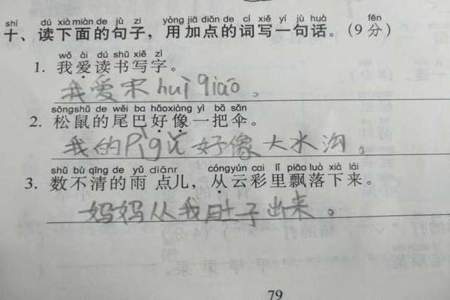 shí dú xià miàn de jù zi yòng jiā diǎn de cí xiě yí jù huà fēn
十、读下面的句子，用加点的词写一句话。(9分)
wǒ ài dú shū xiě zì
1. 我爱读书写字。
我爱宋huì qiǎo。
sōngshǔ de wěi ba hǎoxiàng yì bǎ sǎn
2. 松鼠的尾巴好像一把伞。
我的Pìgǔ好像大水沟。
shǔ bù qīng de yǔ diǎnr cóngyún cai lǐ piāo luò xià lái
3. 数不清的雨点儿，从云彩里飘落下来。
妈妈从我肚子出来。
79